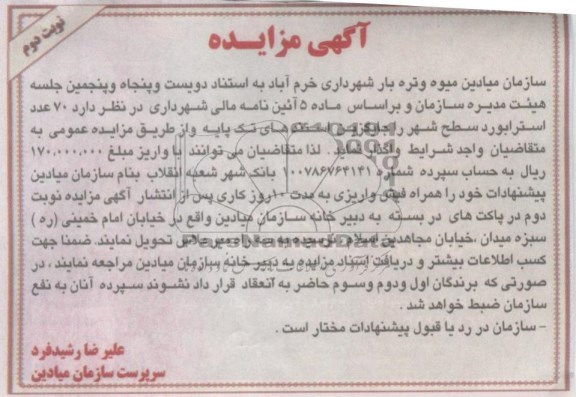 نوبت دوم
آگهی مزایده
سازمان میادین میوه وتره بار شهرداری خرم آباد به استناد دویست وپنجاه وپنجمین جلسه
هیئت مدیره سازمان و براساس ماده ۵ آئین نامه مالی شهرداری در نظر دارد ۷۰ عدد
استرابورد سطح شهر را جایگزین استند های تک پایه واز طریق مزایده عمومی به
متقاضیان واجد شرایط واگذار نماید. لذا متقاضیان می توانند با واریز مبلغ ۱۷۰،۰۰۰،۰۰۰
ریال به حساب سپرده شماره ۱۰۰۷۸۶۷۶۴۱۴۱ بانک شهر شعبه انقلاب بنام سازمان میادین
پیشنهادات خود را همراه فیش واریزی به مدت ۱۰روز کاری پس از انتشار آگهی مزایده نوبت
دوم در پاکت های در بسته به دبیر خانه سازمان میادین واقع در خیابان امام خمینی (ره )
سبزه میدان ،خیابان مجاهدین اسلام نرسیده به تحویل نمایند. ضمنا جهت
کسب اطلاعات بیشتر و دریافت اسناد مزایده به دبیر خانه سازمان میادین مراجعه نمایند ، در
صورتی که برندگان اول ودوم وسوم حاضر به انعقاد قرار داد نشوند سپرده آنان به نفع
سازمان ضبط خواهد شد .
- سازمان در رد یا قبول پیشنهادات مختار است .
علیرضا رشیدفرد
سرپرست سازمان میادین